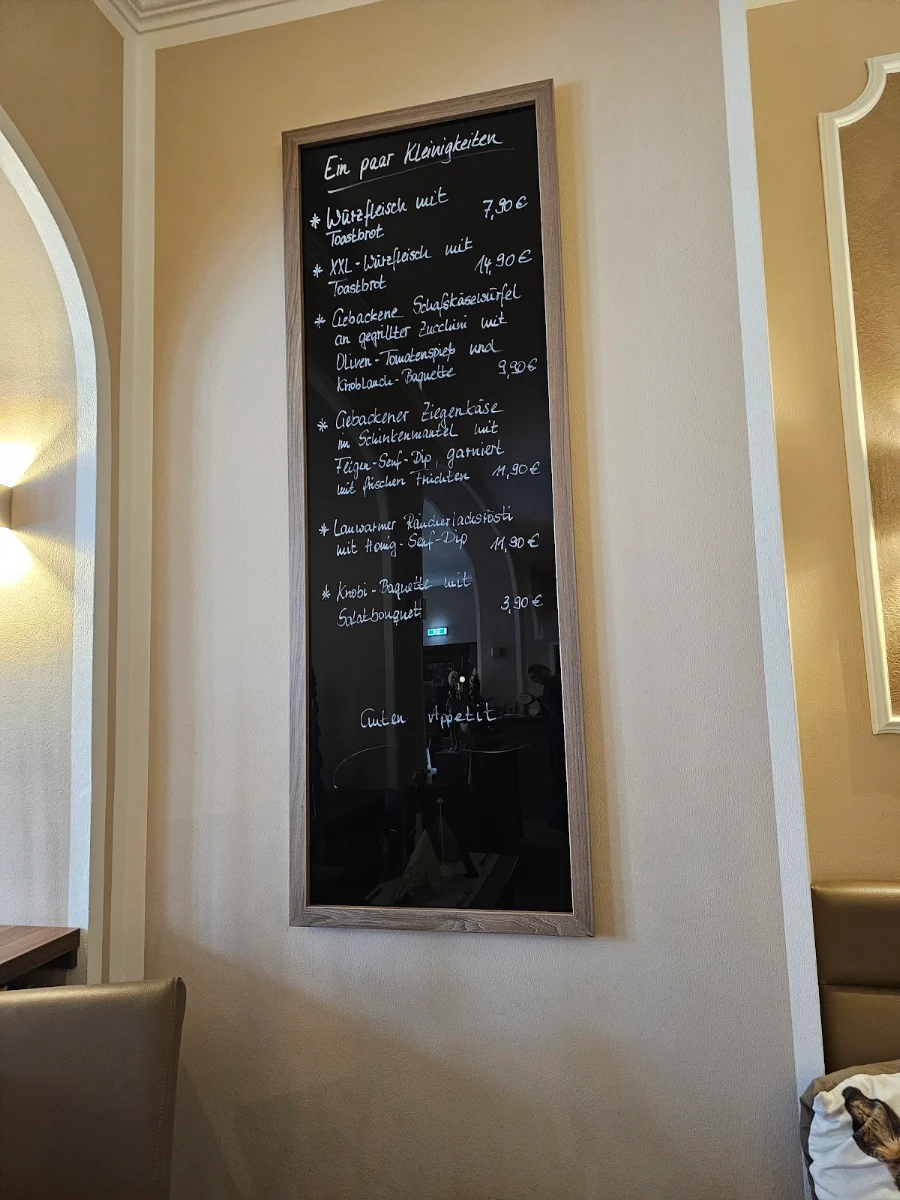 Ein paar Kleinigkeiten
* Würzfleisch mit 7,90 €
Toastbrot
* XXL-Würzfleisch mit 14,90 €
Toastbrot
* Gebackene Schafskäsewürfel
an gegrillter Zucchini mit
Oliven-Tomatenspieß und
Knoblauch-Baguette 9,90 €
* Gebackener Ziegenkäse
im Schinkenmantel mit
Feigen-Senf-Dip, garniert
mit frischen Früchten 11,90 €
* Lauwarmer Räucherlachsrösti
mit Honig-Senf-Dip 11,90 €
* Knobi-Baguette mit
Salatbouquet 3,90 €
Guten Appetit